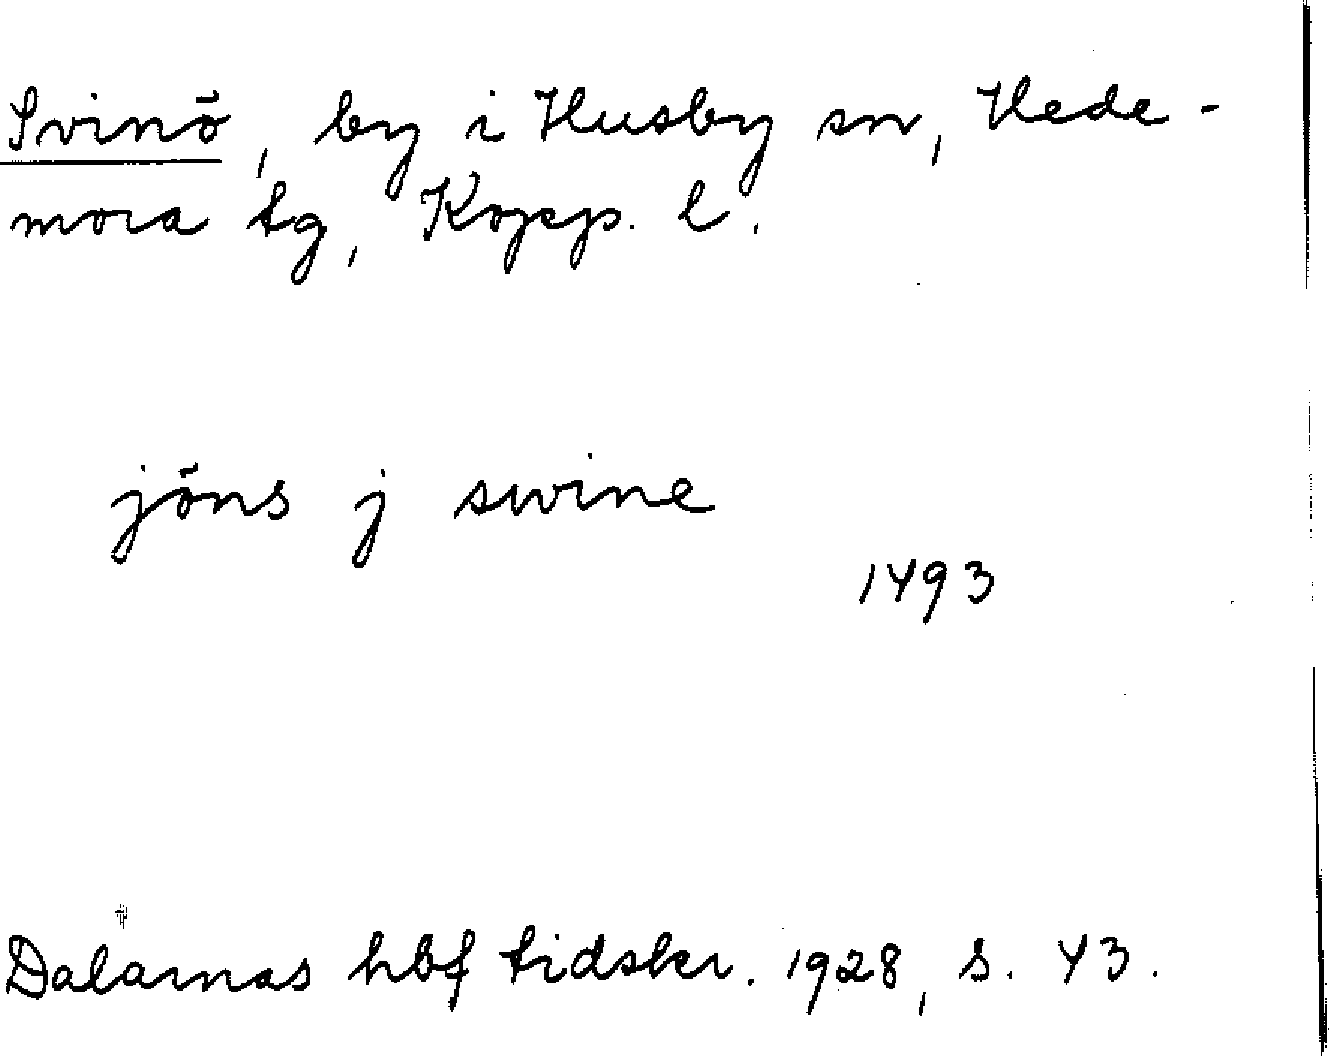 Svinö, by i Husby sn, Hede-
mora tg, Kopp. l.
jöns j swine
1493
Dalarnas hbf tidskr. 1928, s. 43.